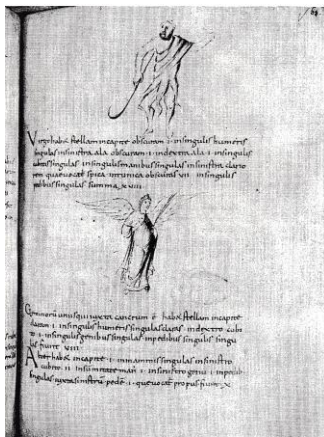 Virgo habet stellam in capite obscuram · i · in singulis humeris
singulas in sinistra ala obscuram · i · in dextra ala · i · in singulis
cubitis singulas in singulis manibus singulas in sinistra clario
rem quae vocat spica in tunica obscuras vii · in singulis
pedibus singulas summa xviii
Geminorum unus qui iuxta cancrum ē habet stellam in capite
claram · i · in singulis humeris singulas claras · in dextro cubi
to · i · in singulis genibus singulas in pedibus singulis singu
las fiunt viiii
Alter habet in capite · i · in mammis singulas in sinistro
cubito · i · in sinistro genu · i · in pedib
singulas iuxta sinistrum pedē · i · que vocat propus fiunt x